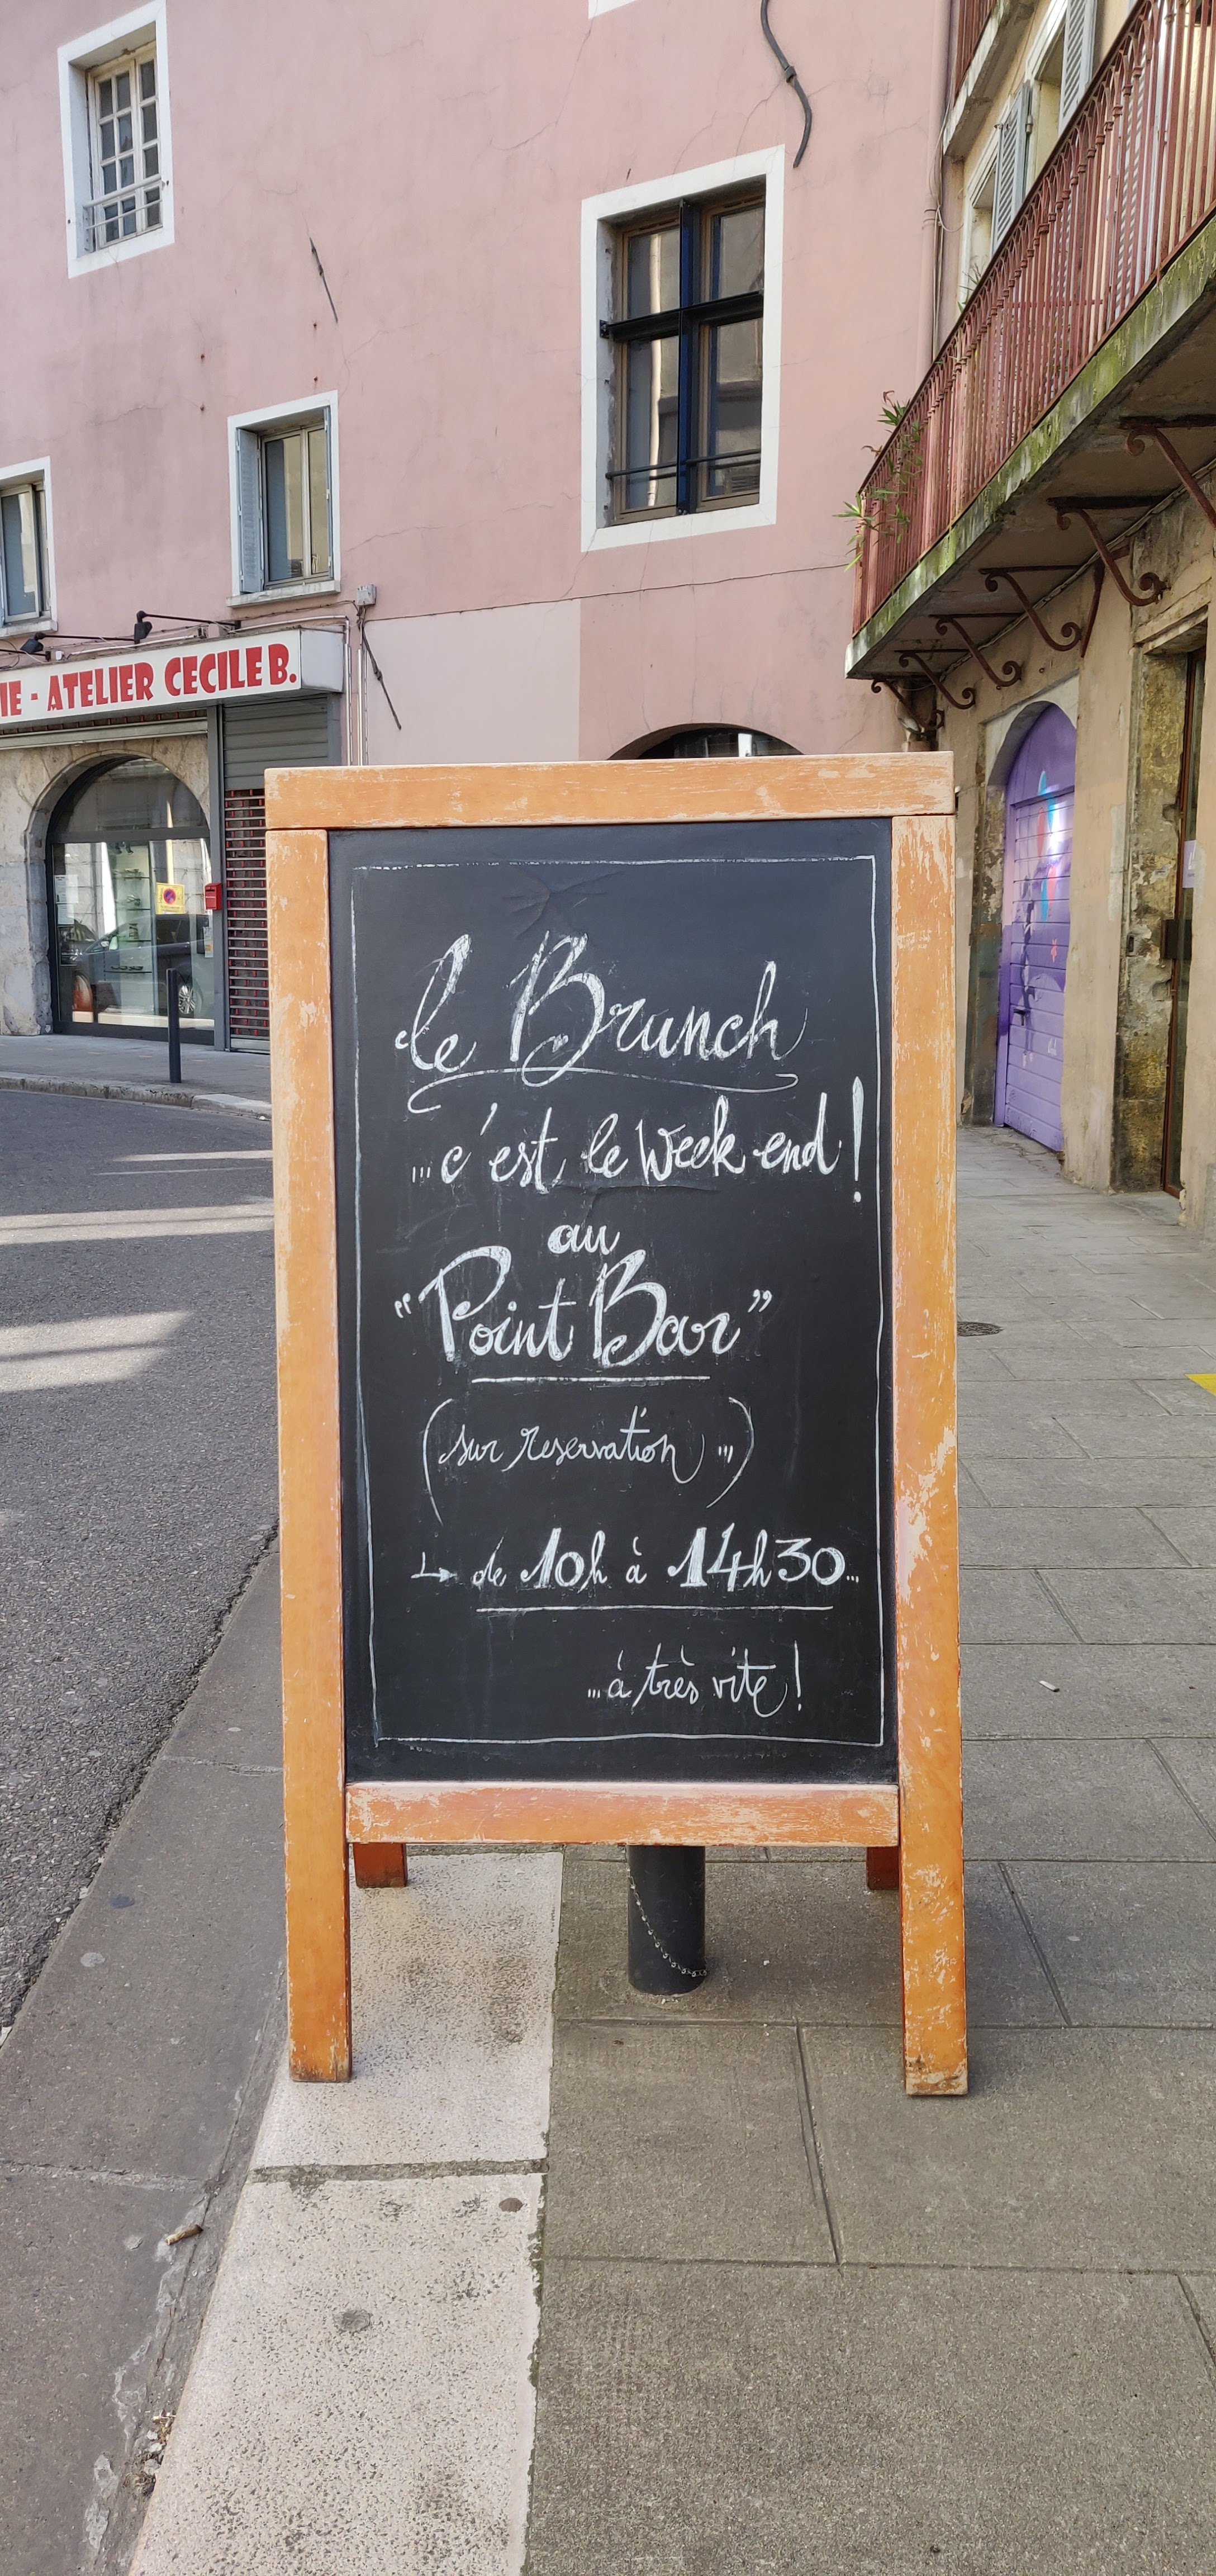 IE - ATELIER CECILE B.
le Brunch
...c'est le Week end !
au
“Point Bar”
(sur reservation...)
↳ de 10h à 14h30...
...à très vite !